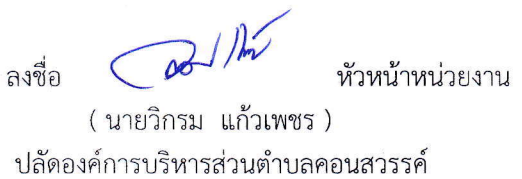 ลงชื่อ หัวหน้าหน่วยงาน
( นายวิกรม แก้วเพชร )
ปลัดองค์การบริหารส่วนตำบลคอนสวรรค์